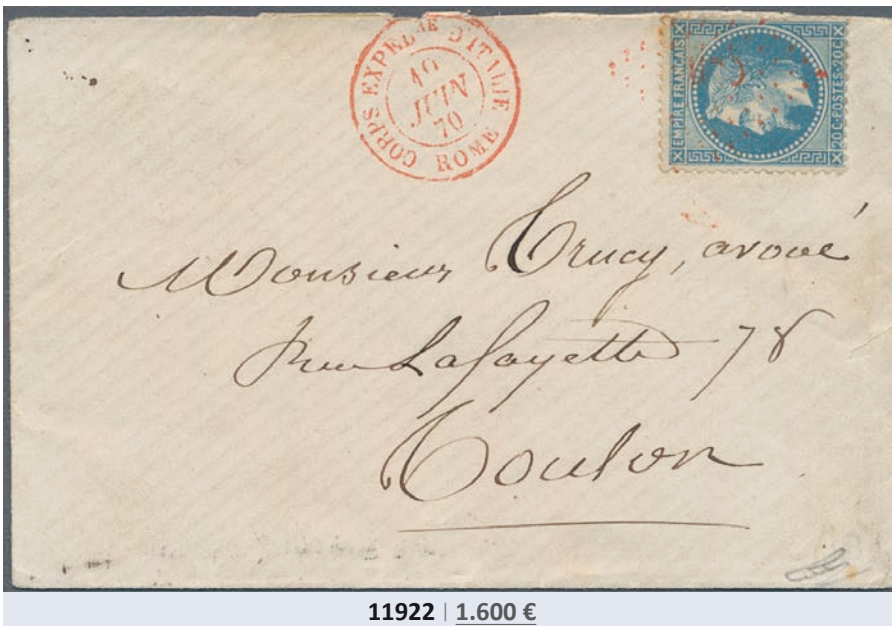 CORPS EXPEDRE D'ITALIE
19
JUIN
70
ROME
EMPIRE FRANÇAIS
20C·POSTES·20C
Monsieur Trucy, avoué
Rue Lafayette 78
Toulon
11922 | 1.600 €